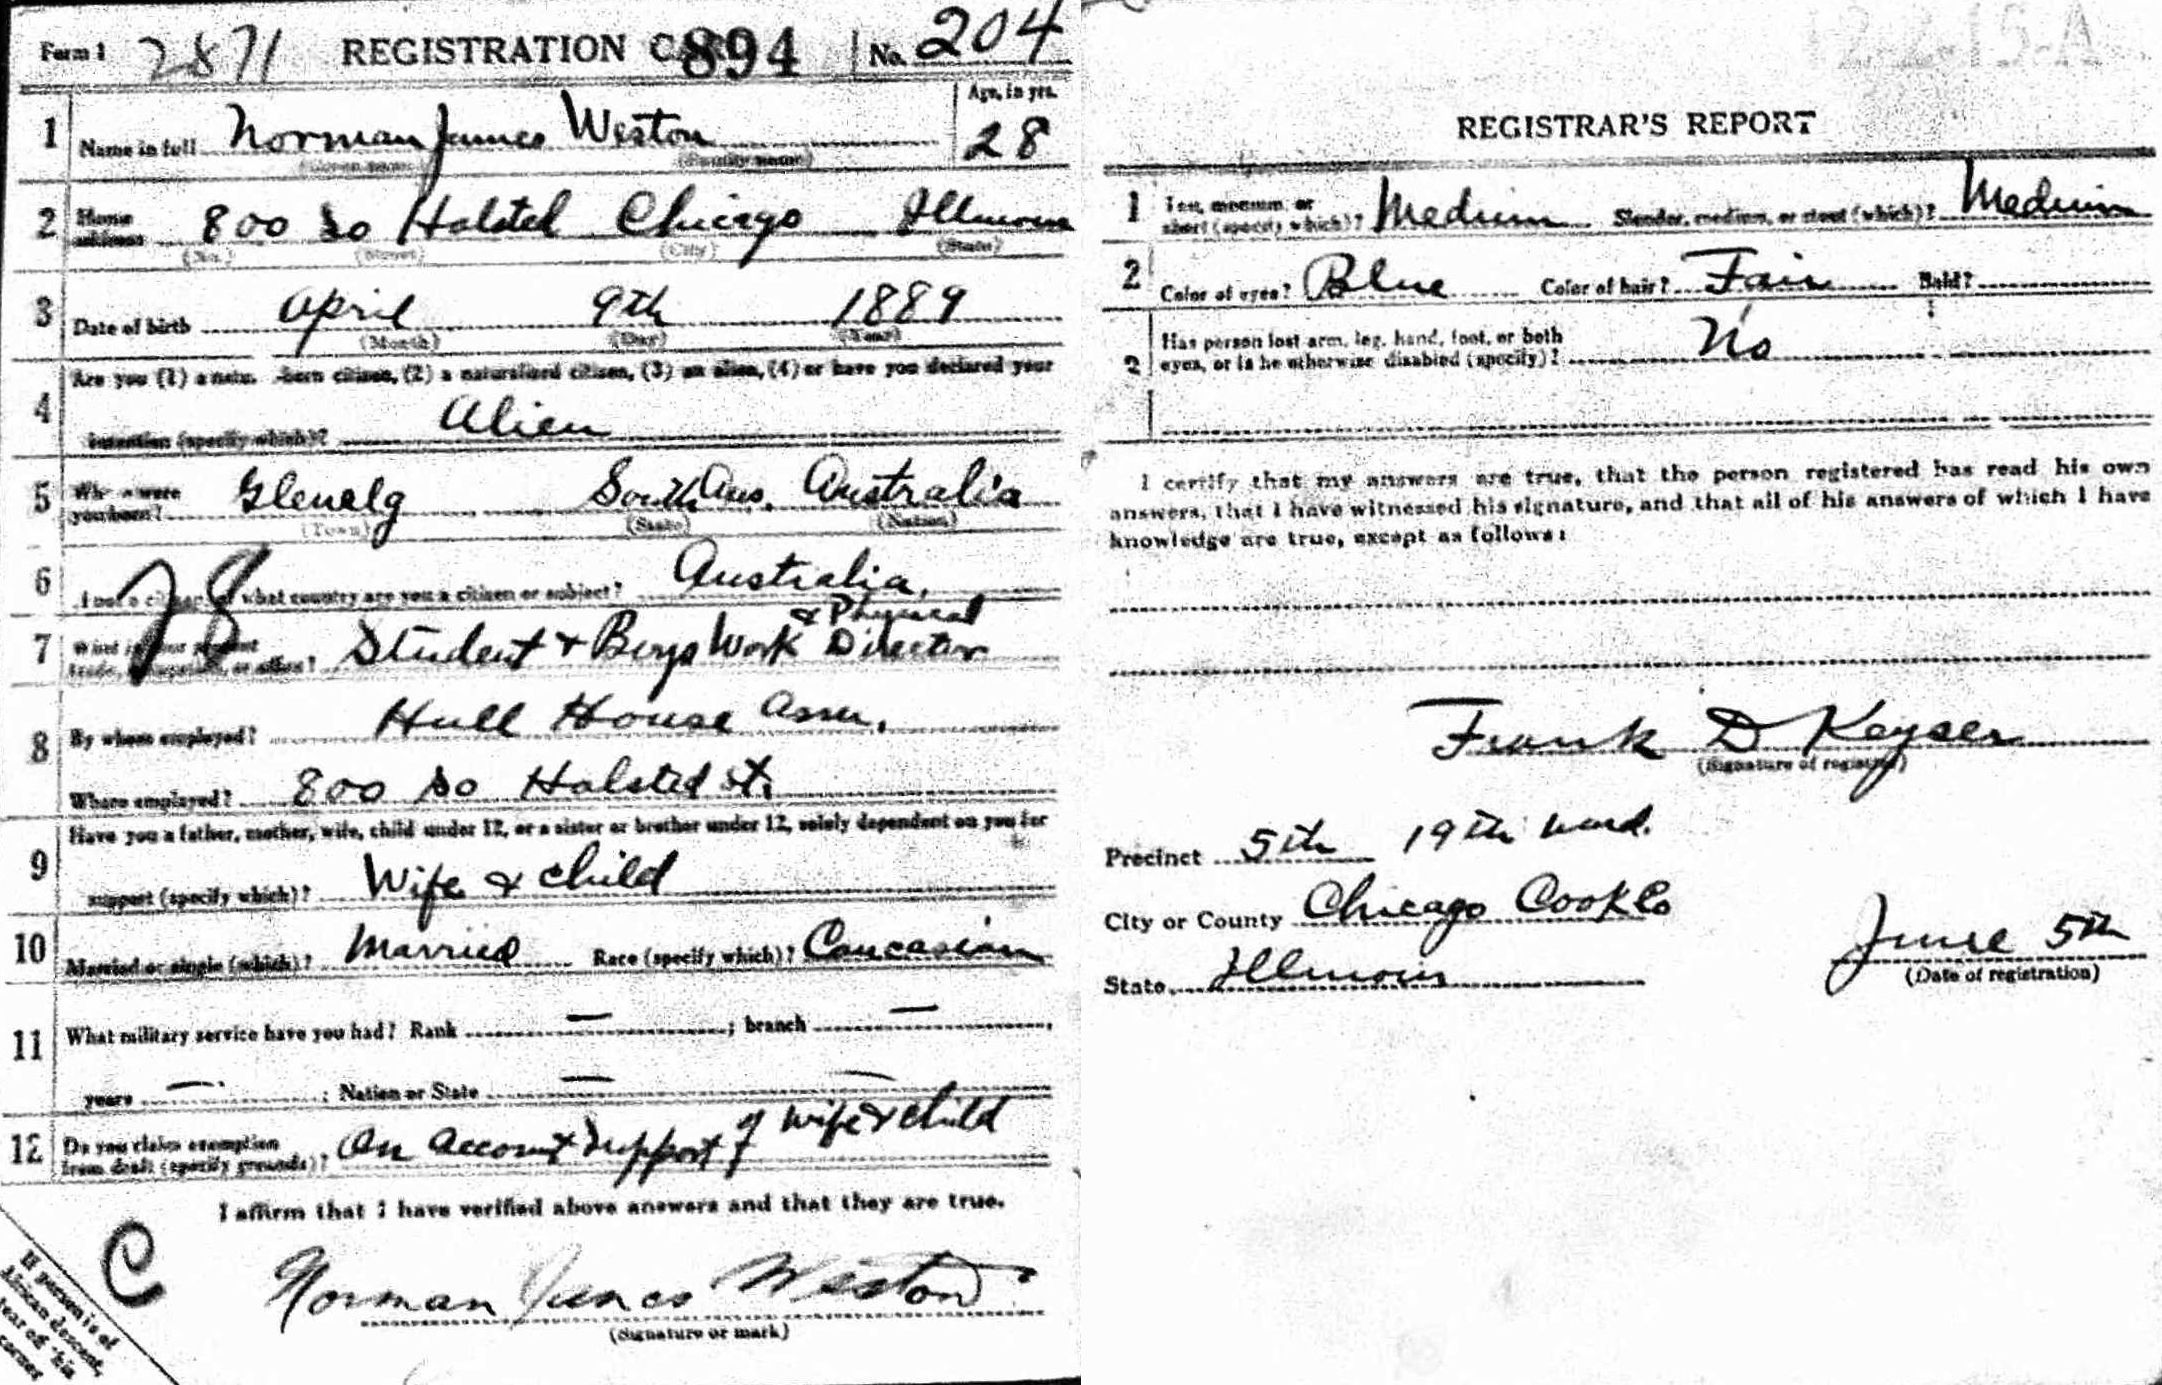 Form 1 2871 REGISTRATION C 894 No. 204
1 Name in full Norman James Weston Age, in yrs. 28
(Given name) (Family name)
2 Home address 800 So Halsted Chicago Illinois
(No.) (Street) (City) (State)
3 Date of birth April 9th 1889
(Month) (Day) (Year)
Are you (1) a natu. -born citizen, (2) a naturalized citizen, (3) an alien, (4) or have you declared your
4 intention (specify which)? Alien
5 Where were you born? Glenelg South Aus. Australia
(Town) (State) (Nation)
6 what country are you a citizen or subject? Australia,
& Physical
7 Student & Boys Work Director
trade, occupation, or office?
8 By whom employed? Hull House Assn.
Where employed? 800 So Halsted St.
Have you a father, mother, wife, child under 12, or a sister or brother under 12, solely dependent on you for
9 support (specify which)? Wife & child
10 Married or single (which)? Married Race (specify which)? Caucasian
11 What military service have you had? Rank — ; branch —
years — ; Nation or State —
12 Do you claim exemption from draft (specify grounds)? On Account Support of Wife & child
I affirm that I have verified above answers and that they are true.
C
Norman James Weston
(Signature or mark)
If person is of
African descent,
tear off this
corner
12-2-15-A
REGISTRAR'S REPORT
1 Tall, medium, or short (specify which)? Medium Slender, medium, or stout (which)? Medium
2 Color of eyes? Blue Color of hair? Fair Bald?
Has person lost arm, leg, hand, foot, or both
2 eyes, or is he otherwise disabled (specify)? No
I certify that my answers are true, that the person registered has read his own
answers, that I have witnessed his signature, and that all of his answers of which I have
knowledge are true, except as follows:
Frank D Keyser
(Signature of registrar)
Precinct 5th 19th Ward.
City or County Chicago Cook Co
State Illinois
June 5th
(Date of registration)